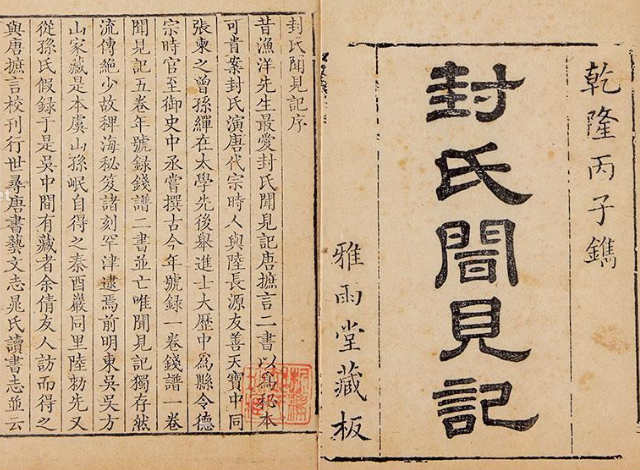 乾隆丙子鐫
封氏聞見記
雅雨堂藏板
封氏聞見記序
昔漁洋先生最愛封氏聞見記唐摭言二書以爲秘本
可貴案封氏演唐代宗時人與陸長源友善天寶中同
張柬之曾孫繟在太學先後舉進士大歴中爲縣令德
宗時官至御史中丞嘗撰古今年號録一卷錢譜一卷
聞見記五卷年號録錢譜二書並亡唯聞見記獨存然
流傳絶少故稗海秘笈諸刻罕津逮焉前明東吳吳方
山家藏是本虞山孫岷自得之秦酉巖同里陸勑先又
從孫氏假録于是吳中間有藏者余倩友人訪而得之
與唐摭言校刊行世尋唐書藝文志晁氏讀書志並云